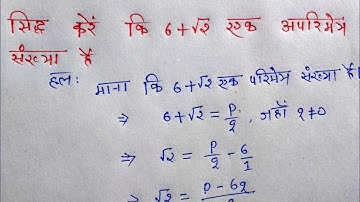 सिद्ध करें कि 6+√2 एक अपरिमेय
संख्या है
हल: माना कि 6+√2 एक परिमेय संख्या है।
⇒ 6+√2 = p/q, जहाँ q≠0
⇒ √2 = p/q - 6/1
⇒ √2 = p-6q